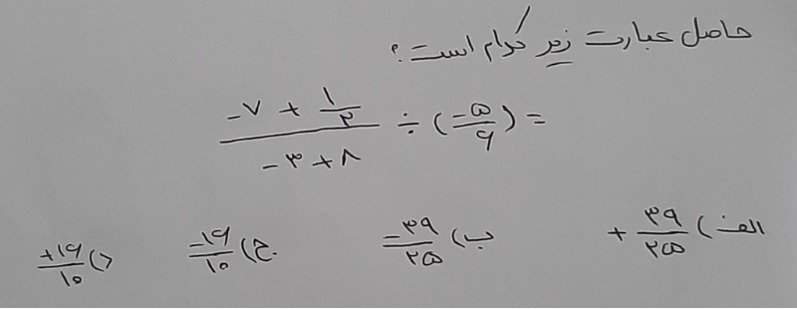 حاصل عبارت زیر کدام است؟
(-۷ + ۱/۲)/(-۳+۸) ÷ (-۵/۶) =
الف) +۳۹/۲۵ ب) -۳۹/۲۵ ج) -۱۶/۱۰ د) +۱۶/۱۰